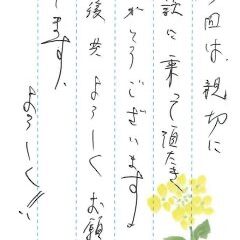 今回は、親切に
談に乗って頂き
がとうございます。
後共よろしくお願
します。
よろしく!!